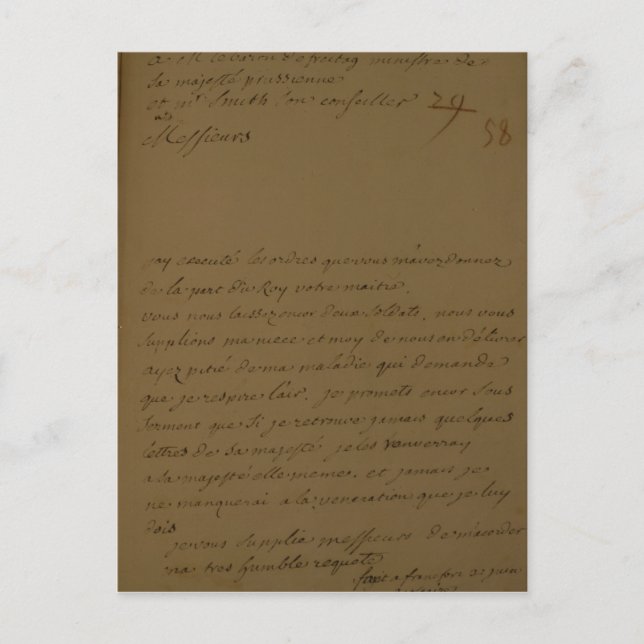 a M le baron de freitag ministre de
sa majesté prussienne
et mr Smith son conseiller 29
58
Messieurs
jay executé les ordres que vous m'avez donnez
de la part du Roy votre maitre.
vous nous laissez encor deux soldats. nous vous
supplions ma niece et moy de nous en délivrer
ayez pitié de ma maladie qui demande
que je respire l'air. je promets encor sous
serment que si je retrouve jamais quelques
lettres de sa majesté je les renverray
a sa majesté elle meme. et jamais je
ne manquerai a la veneration que je luy
dois
je vous supplie messieurs de m'acorder
ma tres humble requete
fait a francfort juin